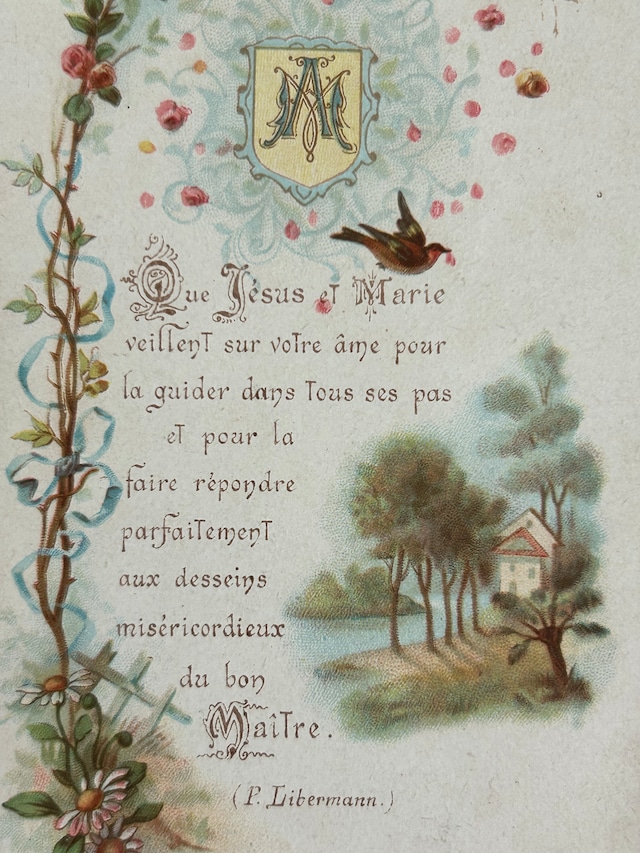 Que Jésus et Marie
veillent sur votre âme pour
la guider dans tous ses pas
et pour la
faire répondre
parfaitement
aux desseins
miséricordieux
du bon
Maître.
(P. Libermann.)